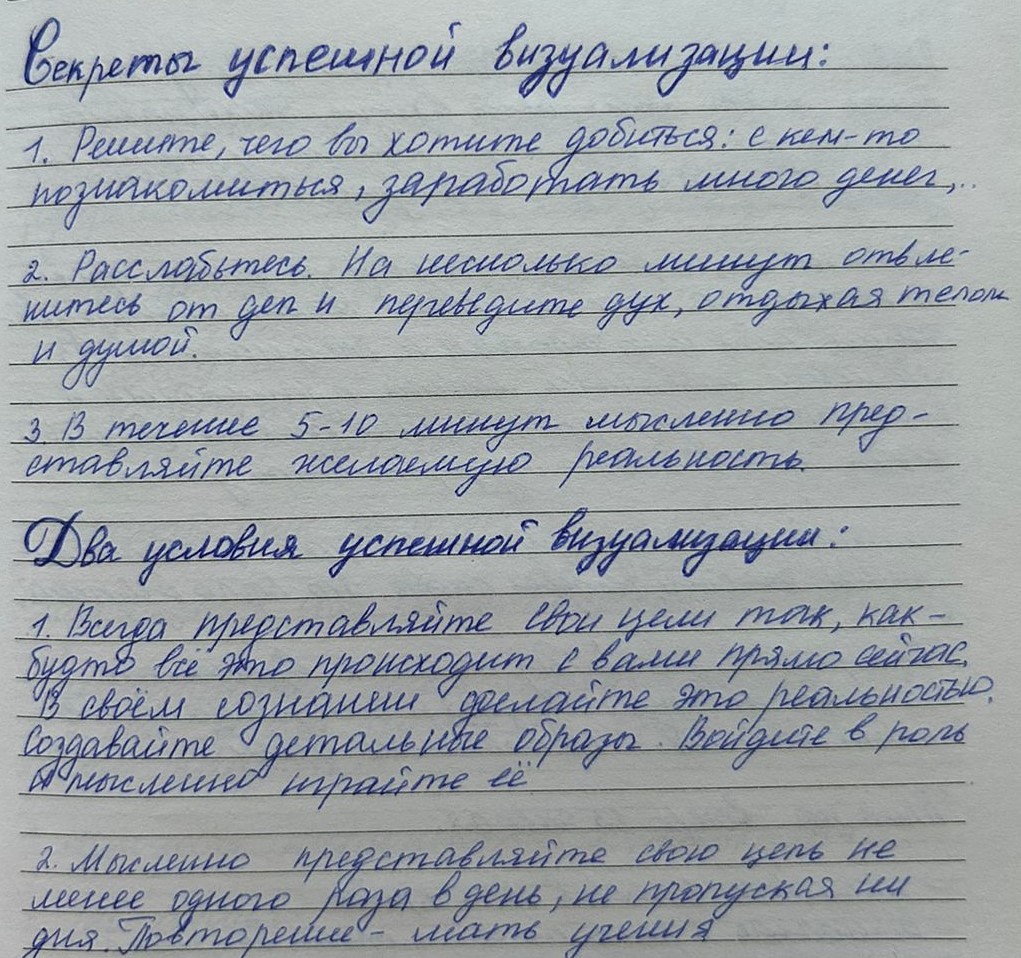 Секреты успешной визуализации:
1. Решите, чего вы хотите добиться: с кем-то
познакомиться, заработать много денег,..
2. Расслабьтесь. На несколько минут отвле-
китесь от дел и переведите дух, отдыхая телом
и душой.
3. В течение 5-10 минут мысленно пред-
ставляйте желаемую реальность.
Два условия успешной визуализации:
1. Всегда представляйте свои цели так, как-
будто всё это происходит с вами прямо сейчас.
В своём сознании сделайте это реальностью.
Создавайте детальные образы. Войдите в роль
и мысленно играйте её
2. Мысленно представляйте свою цель не
менее одного раза в день, не пропуская ни
дня. Повторение - мать учения